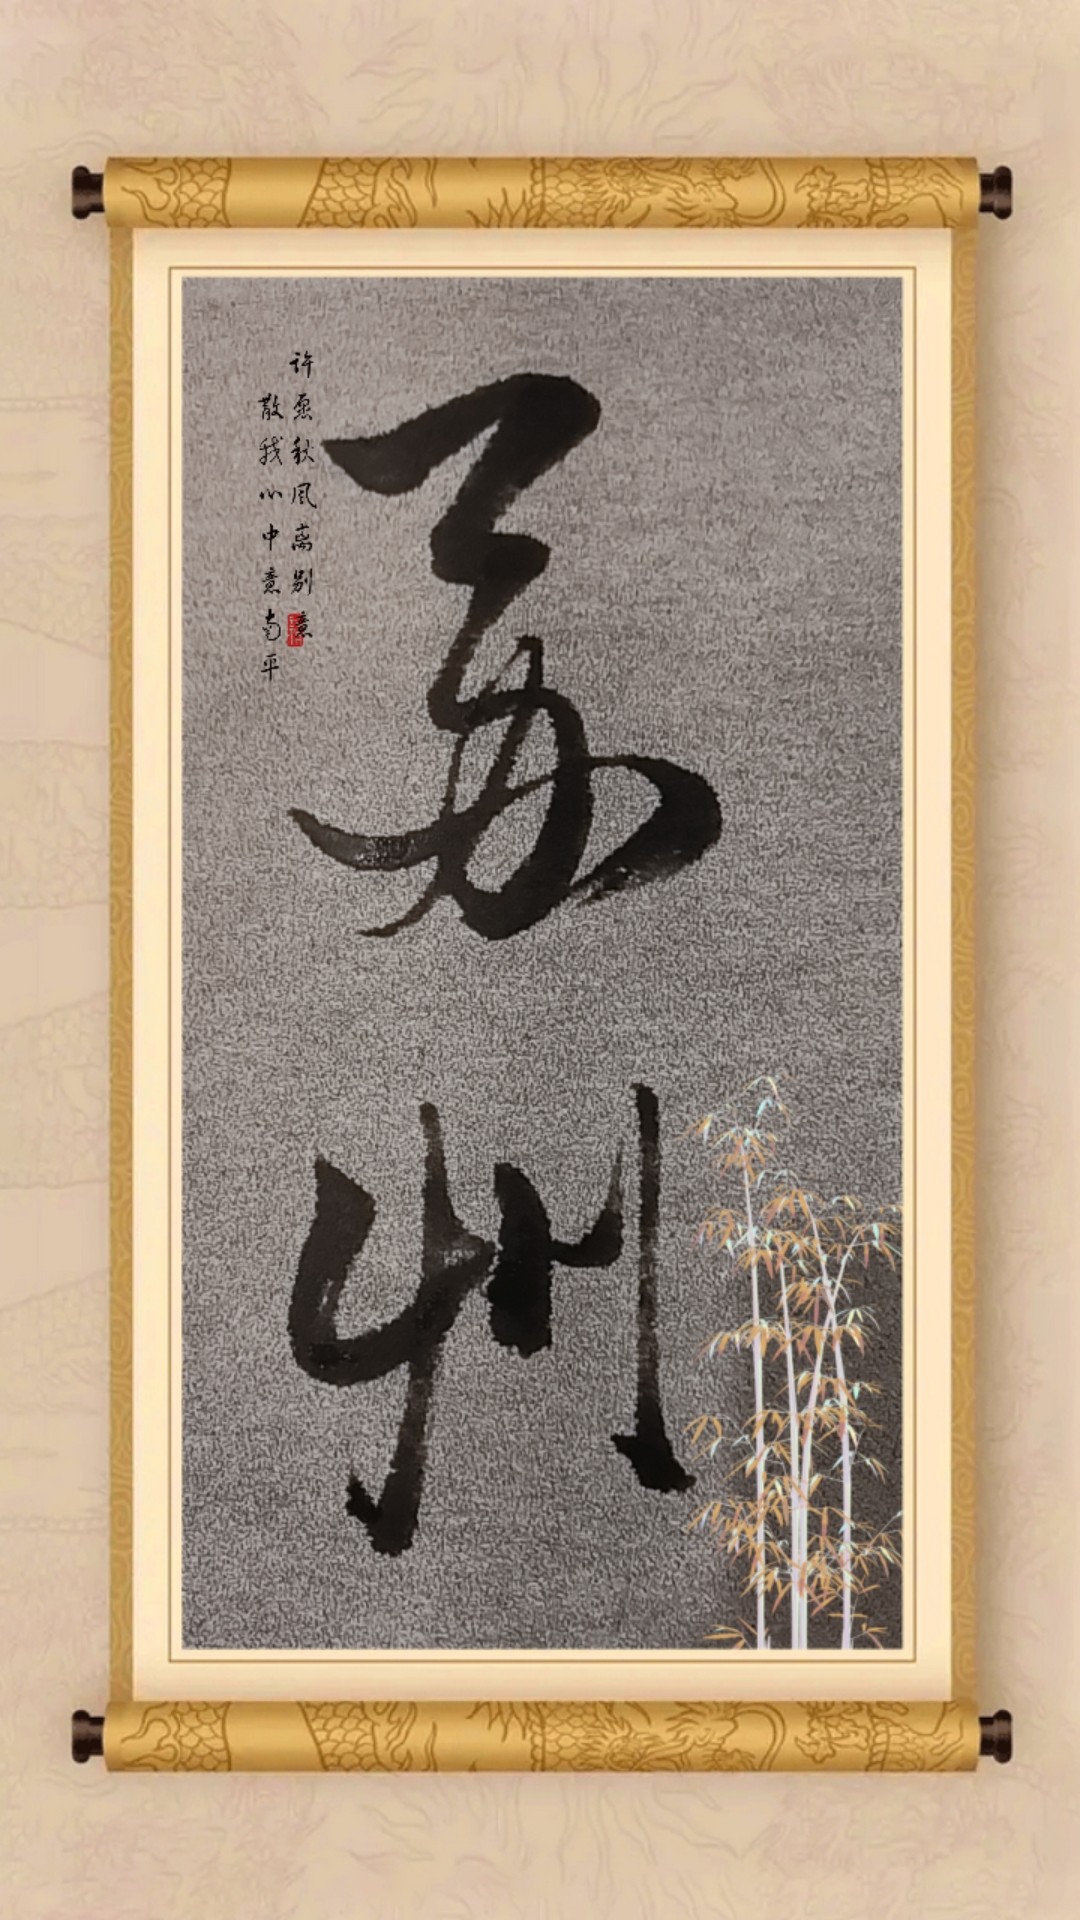 州
许愿秋风离别意
散我心中意南平